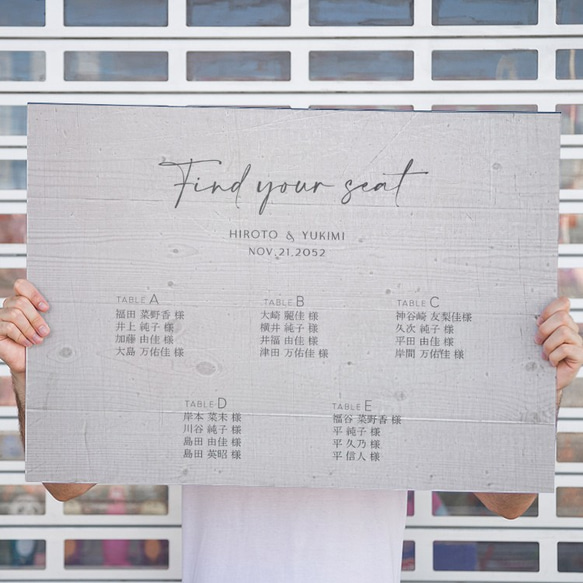 Find your seat
HIROTO & YUKIMI
NOV.21.2052
TABLE A
福田 菜野香 様
井上 純子 様
加藤 由佳 様
大島 万佑佳 様
TABLE B
大崎 麗佳 様
横井 純子 様
井福 由佳 様
津田 万佑佳 様
TABLE C
神谷崎 友梨佳様
久次 純子 様
平田 由佳 様
岸間 万佑佳 様
TABLE D
岸本 菜未 様
川谷 純子 様
島田 由佳 様
島田 英昭 様
TABLE E
福谷 菜野香 様
平 純子 様
平 久乃 様
平 信人 様